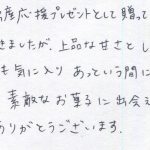 産応援プレゼントとして贈って
きましたが、上品な甘さとし
も気に入り あっという間に
素敵なお菓子に出会え
ありがとうございます。